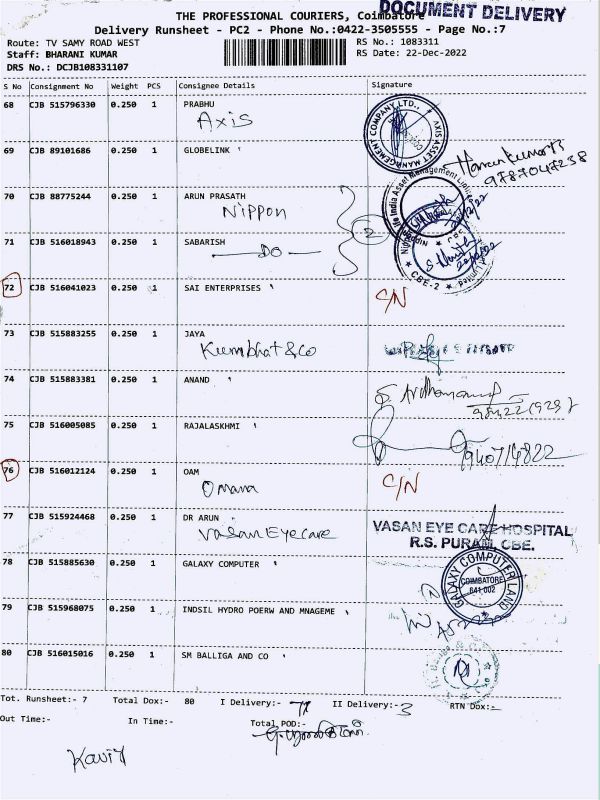 THE PROFESSIONAL COURIERS, Coimbatore
DOCUMENT DELIVERY
Delivery Runsheet - PC2 - Phone No.:0422-3505555 - Page No.:7
Route: TV SAMY ROAD WEST
RS No.: 1083311
Staff: BHARANI KUMAR
RS Date: 22-Dec-2022
DRS No.: DCJB108331107
S No Consignment No Weight PCS Consignee Details Signature
68 CJB 515796330 0.250 1 PRABHU
Axis
AXIS ASSET MANAGEMENT COMPANY LTD.,
69 CJB 89101686 0.250 1 GLOBELINK
9787047238
70 CJB 88775244 0.250 1 ARUN PRASATH
Nippon
71 CJB 516018943 0.250 1 SABARISH
DO
2
CBE-2
72 CJB 516041023 0.250 1 SAI ENTERPRISES
C/N
73 CJB 515883255 0.250 1 JAYA
Kumbhat & Co
74 CJB 515883381 0.250 1 ANAND
75 CJB 516005085 0.250 1 RAJALASKHMI
9940714822
76 CJB 516012124 0.250 1 OAM
Omana
C/N
77 CJB 515924468 0.250 1 DR ARUN
Vasan Eye care
VASAN EYE CARE HOSPITAL
R.S. PURAM, CBE.
78 CJB 515885630 0.250 1 GALAXY COMPUTER
GALAXY COMPUTER LAND
COIMBATORE
641 002
79 CJB 515968075 0.250 1 INDSIL HYDRO POERW AND MNAGEME
80 CJB 516015016 0.250 1 SM BALLIGA AND CO
Tot. Runsheet:- 7 Total Dox:- 80 I Delivery:- 77 II Delivery:- 3 RTN Dox:-
Out Time:- In Time:- Total POD:-